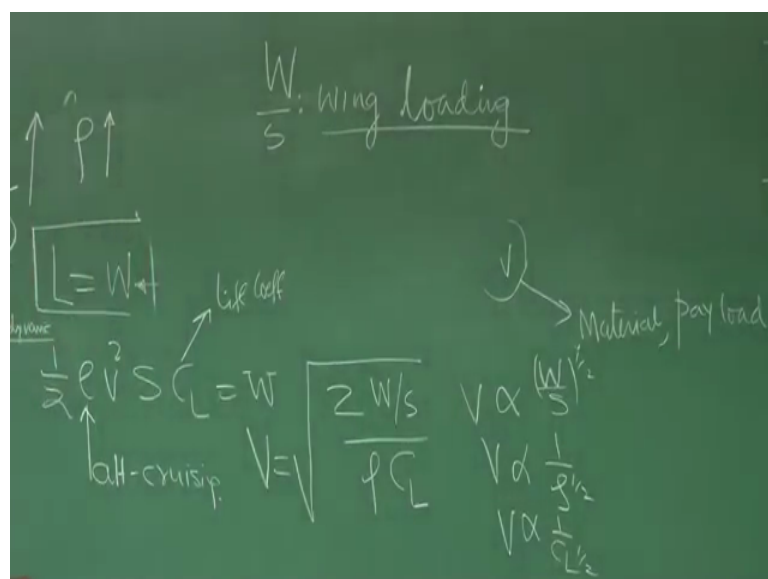 W/S : wing loading
ρ
L = W
Lift Coeff
V
Material, payload
½ ρ V² S C_L = W
alt-cruisip.
V = √(2 W/S / ρ C_L)
V ∝ (W/S)^½
V ∝ 1/ρ^½
V ∝ 1/C_L^½